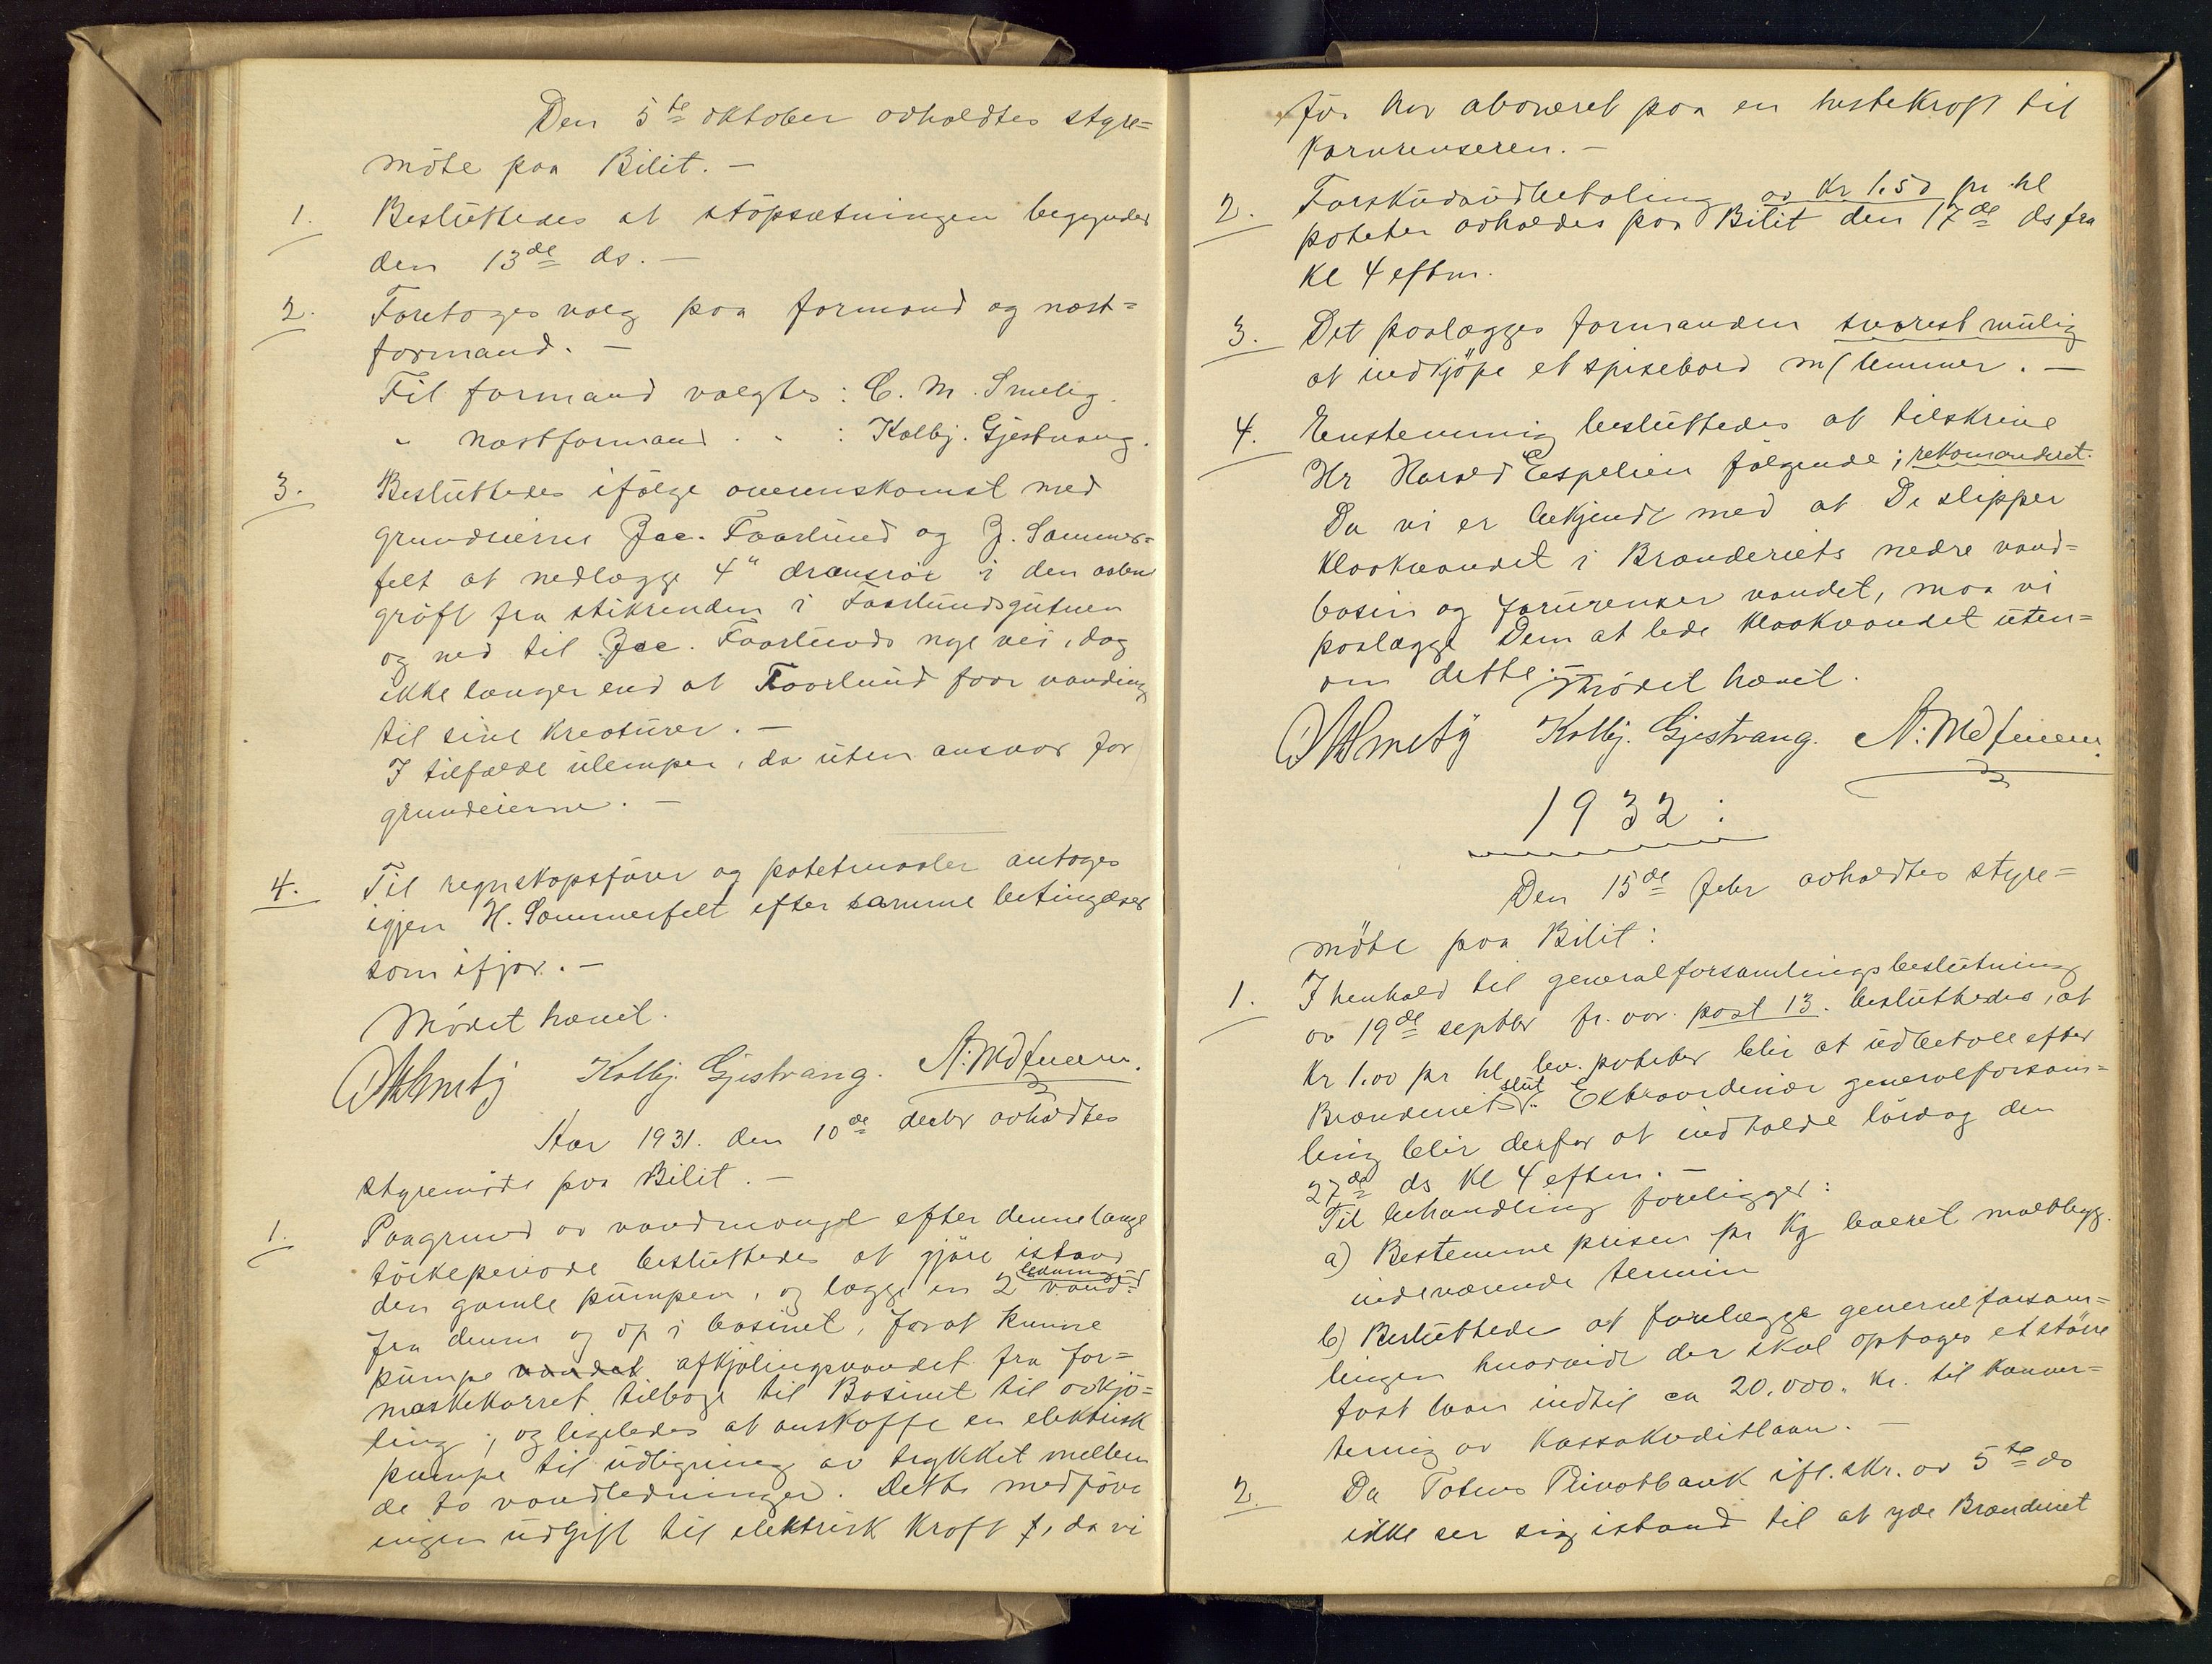 Den 5te oktober avholdtes styre=
möte paa Bilit. —
1. Besluttedes at stöpsætningen begynder
den 13de ds. —
2. Foretoges valg paa formand og næst=
formand. —
Til formand valgtes: C. M. Smeby.
" næstformand " : Kolbj. Gjestvang.
3. Besluttedes ifölge overenskomst med
grundeierne Jac. Faarlund og J. Sommer=
felt at nedlægge 4" drænsrör i den aabne
gröft fra stikrenden i Faarlundsgutuen
og ned til Jac. Faarlunds nye vei, dog
ikke længer end at Faarlund faar vanding
til sine kreaturer. —
I tilfælde ulemper, da uten ansvar for
grundeierne. —
4. Til regnskapsförer og potetmaaler antages
igjen H. Sommerfelt efter samme betingelser
som ifjor. —
Mödet hævet.
CMSmeby Kolbj. Gjestvang.
Aar 1931. den 10de decbr avholdtes
styremöte paa Bilit. —
1. Paagrund av vandmangel efter denne lange
törkeperiode besluttedes at gjöre istand
den gamle pumpen, og lægge en 2" vand=
ledning
fra denne og op i basinet, forat kunne
pumpe vandet afkjölingsvandet fra for=
maskekarret tilbage til Basinet til avkjö=
ling; og ligeledes at anskaffe en elektrisk
pumpe til utligning av trykket mellem
de to vandledninger. Dette medförer
ingen udgift til elektrisk kraft, da vi
för har aboneret paa en hestekraft til
kornrenseren. —
2. Forskudsudbetaling av Kr 1.50 pr hl
poteter avholdes paa Bilit den 17de ds fra
Kl 4 eftm.
3. Det paalægges formanden snarest mulig
at indkjöpe et spisebord m/ lemmer. —
4. Enstemmig besluttedes at tilskrive
Hr Harald Eespelien fölgende; rekomanderet.
Da vi er bekjendt med at De slipper
kloakvandet i Brænderiets nedre vand=
basin og forurenser vandet, maa vi
paalægge Dem at lede kloakvandet uten=
om dette. —
Mödet hævet.
CMSmeby Kolbj. Gjestvang.
1932:
Den 15de febr avholdtes styre=
möte paa Bilit:
1. I henhold til generalforsamlingsbeslutning
av 19de septbr fr. aar. post 13. besluttedes, at
Kr 1.00 pr hl lev. poteter blir at udbetale efter
Brænderiets slut. Extraordinær generalforsam=
ling blir derfor at indkalde lördag den
27de ds Kl 4 eftm. —
Til behandling foreligger:
a) Bestemme prisen pr Kg leveret maltbyg.
indeværende termin
b) Besluttedes at forelægge generalforsam=
lingen hvorvidt der skal optages et större
fast laan indtil ca 20.000,, kr. til konver=
tering av Kassakreditlaan. —
2. Da Totens Privatbank ifl. skr. av 5te ds
ikke ser sig istand til at yde Brænderiet